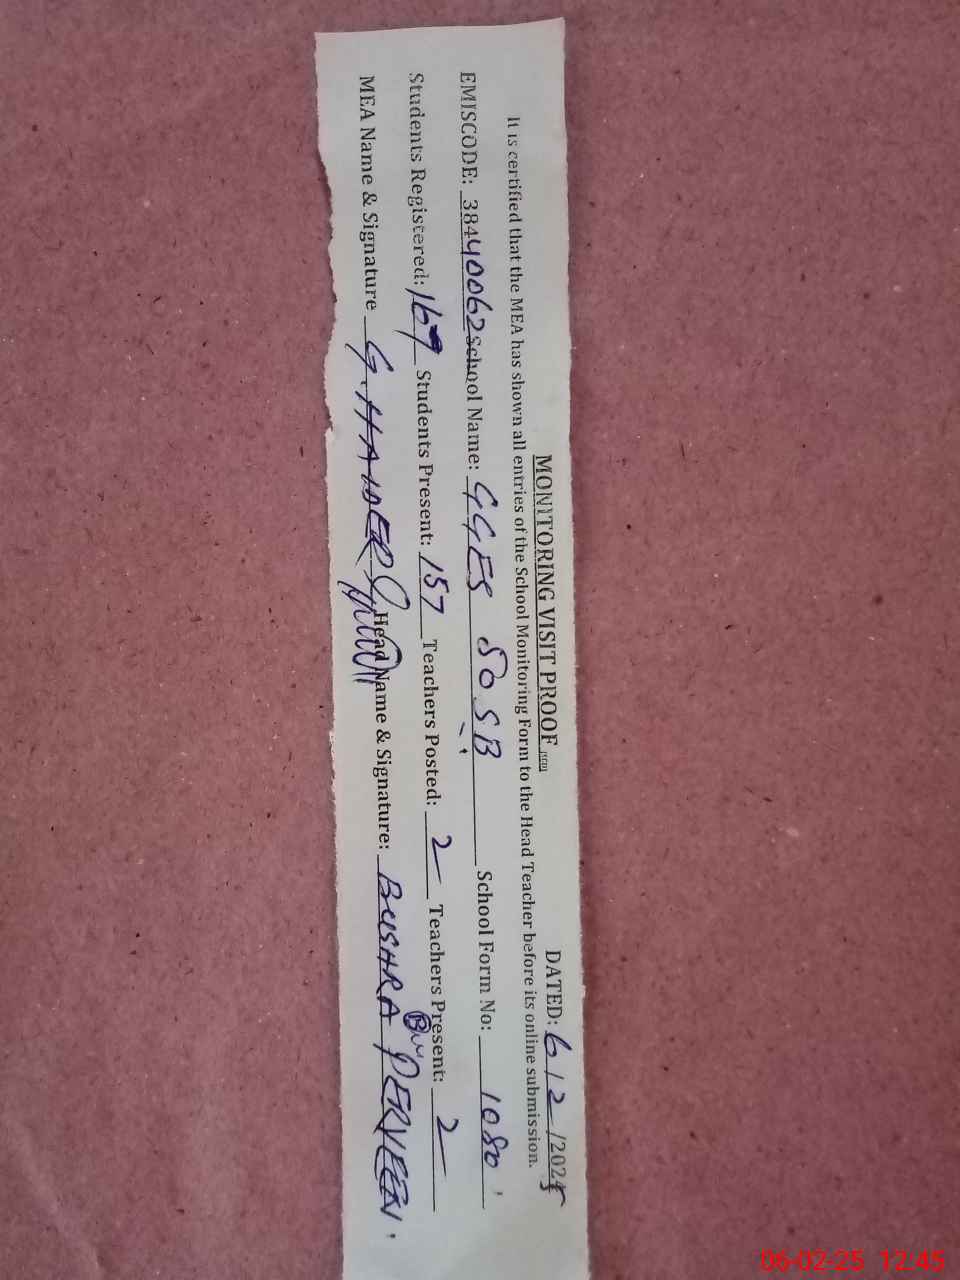 MONITORING VISIT PROOF DATED: 6/2/2025
It is certified that the MEA has shown all entries of the School Monitoring Form to the Head Teacher before its online submission.
EMISCODE: 38440062 School Name: GGES SOSB School Form No: 1080
Students Registered: 169 Students Present: 157 Teachers Posted: 2 Teachers Present: 2
MEA Name & Signature G. HAIDER Head Name & Signature: BUSHRA PERVEEN.
06-02-25 12:45